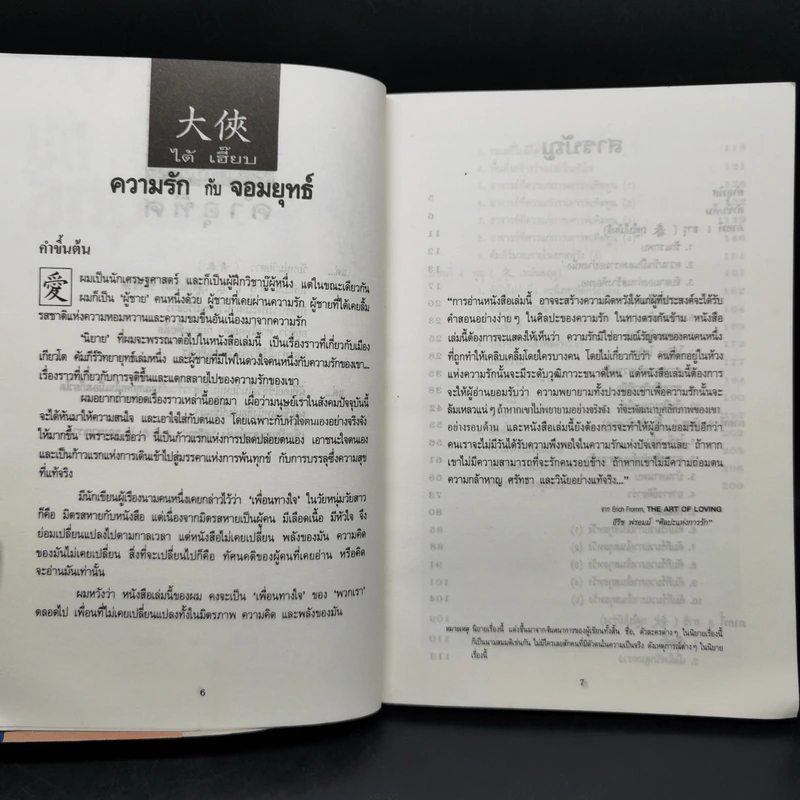 大俠
ไต้ เฮี๊ยบ
ความรัก กับ จอมยุทธ์
คำขึ้นต้น
愛 ผมเป็นนักเศรษฐศาสตร์ และก็เป็นผู้ฝึกวิชาบู๊ผู้หนึ่ง แต่ในขณะเดียวกัน
ผมก็เป็น 'ผู้ชาย' คนหนึ่งด้วย ผู้ชายที่เคยผ่านความรัก ผู้ชายที่ได้เคยลิ้ม
รสชาติแห่งความหอมหวานและความขมขื่นอันเนื่องมาจากความรัก
'นิยาย' ที่ผมจะพรรณาต่อไปในหนังสือเล่มนี้ เป็นเรื่องราวที่เกี่ยวกับเมือง
เกียวโต คัมภีร์วิทยายุทธ์เล่มหนึ่ง และผู้ชายที่มีไฟในดวงใจคนหนึ่งกับความรักของเขา...
เรื่องราวที่เกี่ยวกับการจุติขึ้นและแตกสลายไปของความรักของเขา
ผมอยากถ่ายทอดเรื่องราวเหล่านี้ออกมา เผื่อว่ามนุษย์เราในสังคมปัจจุบันนี้
จะได้หันมาให้ความสนใจ และเอาใจใส่กับตนเอง โดยเฉพาะกับหัวใจตนเองอย่างจริงจัง
ให้มากขึ้น เพราะผมเชื่อว่า นี่เป็นก้าวแรกแห่งการปลดปล่อยตนเอง เอาชนะใจตนเอง
และเป็นก้าวแรกแห่งการเดินเข้าไปสู่มรรคาแห่งการพ้นทุกข์ กับการบรรลุซึ่งความสุข
ที่แท้จริง
มีนักเขียนผู้เรืองนามคนหนึ่งเคยกล่าวไว้ว่า 'เพื่อนทางใจ' ในวัยหนุ่มวัยสาว
ก็คือ มิตรสหายกับหนังสือ แต่เนื่องจากมิตรสหายเป็นผู้คน มีเลือดเนื้อ มีหัวใจ จึง
ย่อมเปลี่ยนแปลงไปตามกาลเวลา แต่หนังสือไม่เคยเปลี่ยน พลังของมัน ความคิด
ของมันไม่เคยเปลี่ยน สิ่งที่จะเปลี่ยนไปก็คือ ทัศนคติของผู้คนที่เคยอ่าน หรือคิด
จะอ่านมันเท่านั้น
ผมหวังว่า หนังสือเล่มนี้ของผม คงจะเป็น 'เพื่อนทางใจ' ของ 'พวกเรา'
ตลอดไป เพื่อนที่ไม่เคยเปลี่ยนแปลงทั้งในมิตรภาพ ความคิด และพลังของมัน
6
"การอ่านหนังสือเล่มนี้ อาจจะสร้างความผิดหวังให้แก่ผู้ที่ประสงค์จะได้รับ
คำสอนอย่างง่าย ๆ ในศิลปะของความรัก ในทางตรงกันข้าม หนังสือ
เล่มนี้ต้องการจะแสดงให้เห็นว่า ความรักมิใช่อารมณ์รัญจวนของคนคนหนึ่ง
ที่ถูกทำให้เคลิบเคลิ้มโดยใครบางคน โดยไม่เกี่ยวกับว่า คนที่ตกอยู่ในห้วง
แห่งความรักนั้นจะมีระดับวุฒิภาวะขนาดไหน แต่หนังสือเล่มนี้ต้องการ
จะให้ผู้อ่านยอมรับว่า ความพยายามทั้งปวงของเขาเพื่อความรักนั้นจะ
ล้มเหลวแน่ ๆ ถ้าหากเขาไม่พยายามอย่างจริงจัง ที่จะพัฒนาบุคลิกภาพของเขา
อย่างรอบด้าน และหนังสือเล่มนี้ยังต้องการจะให้ผู้อ่านยอมรับอีกว่า
คนเราจะไม่มีวันได้รับความพึงพอใจในความรักแห่งปัจเจกชนเลย ถ้าหาก
เขาไม่มีความสามารถที่จะรักคนรอบข้าง ถ้าหากเขาไม่มีความถ่อมตน
ความกล้าหาญ ศรัทธา และวินัยอย่างแท้จริง..."
จาก Erich Fromm, THE ART OF LOVING
อีริช ฟรอมม์ "ศิลปะแห่งการรัก"
หมายเหตุ นิยายเรื่องนี้ แต่งขึ้นมาจากจินตนาการของผู้เขียนทั้งสิ้น ชื่อ, ตัวละครต่าง ๆ ในนิยายเรื่องนี้
ก็เป็นนามสมมติเช่นกัน ไม่มีใครเลยสักคนที่มีตัวตนในความเป็นจริง ดังเหตุการณ์ต่างๆ ในนิยาย
เรื่องนี้
7